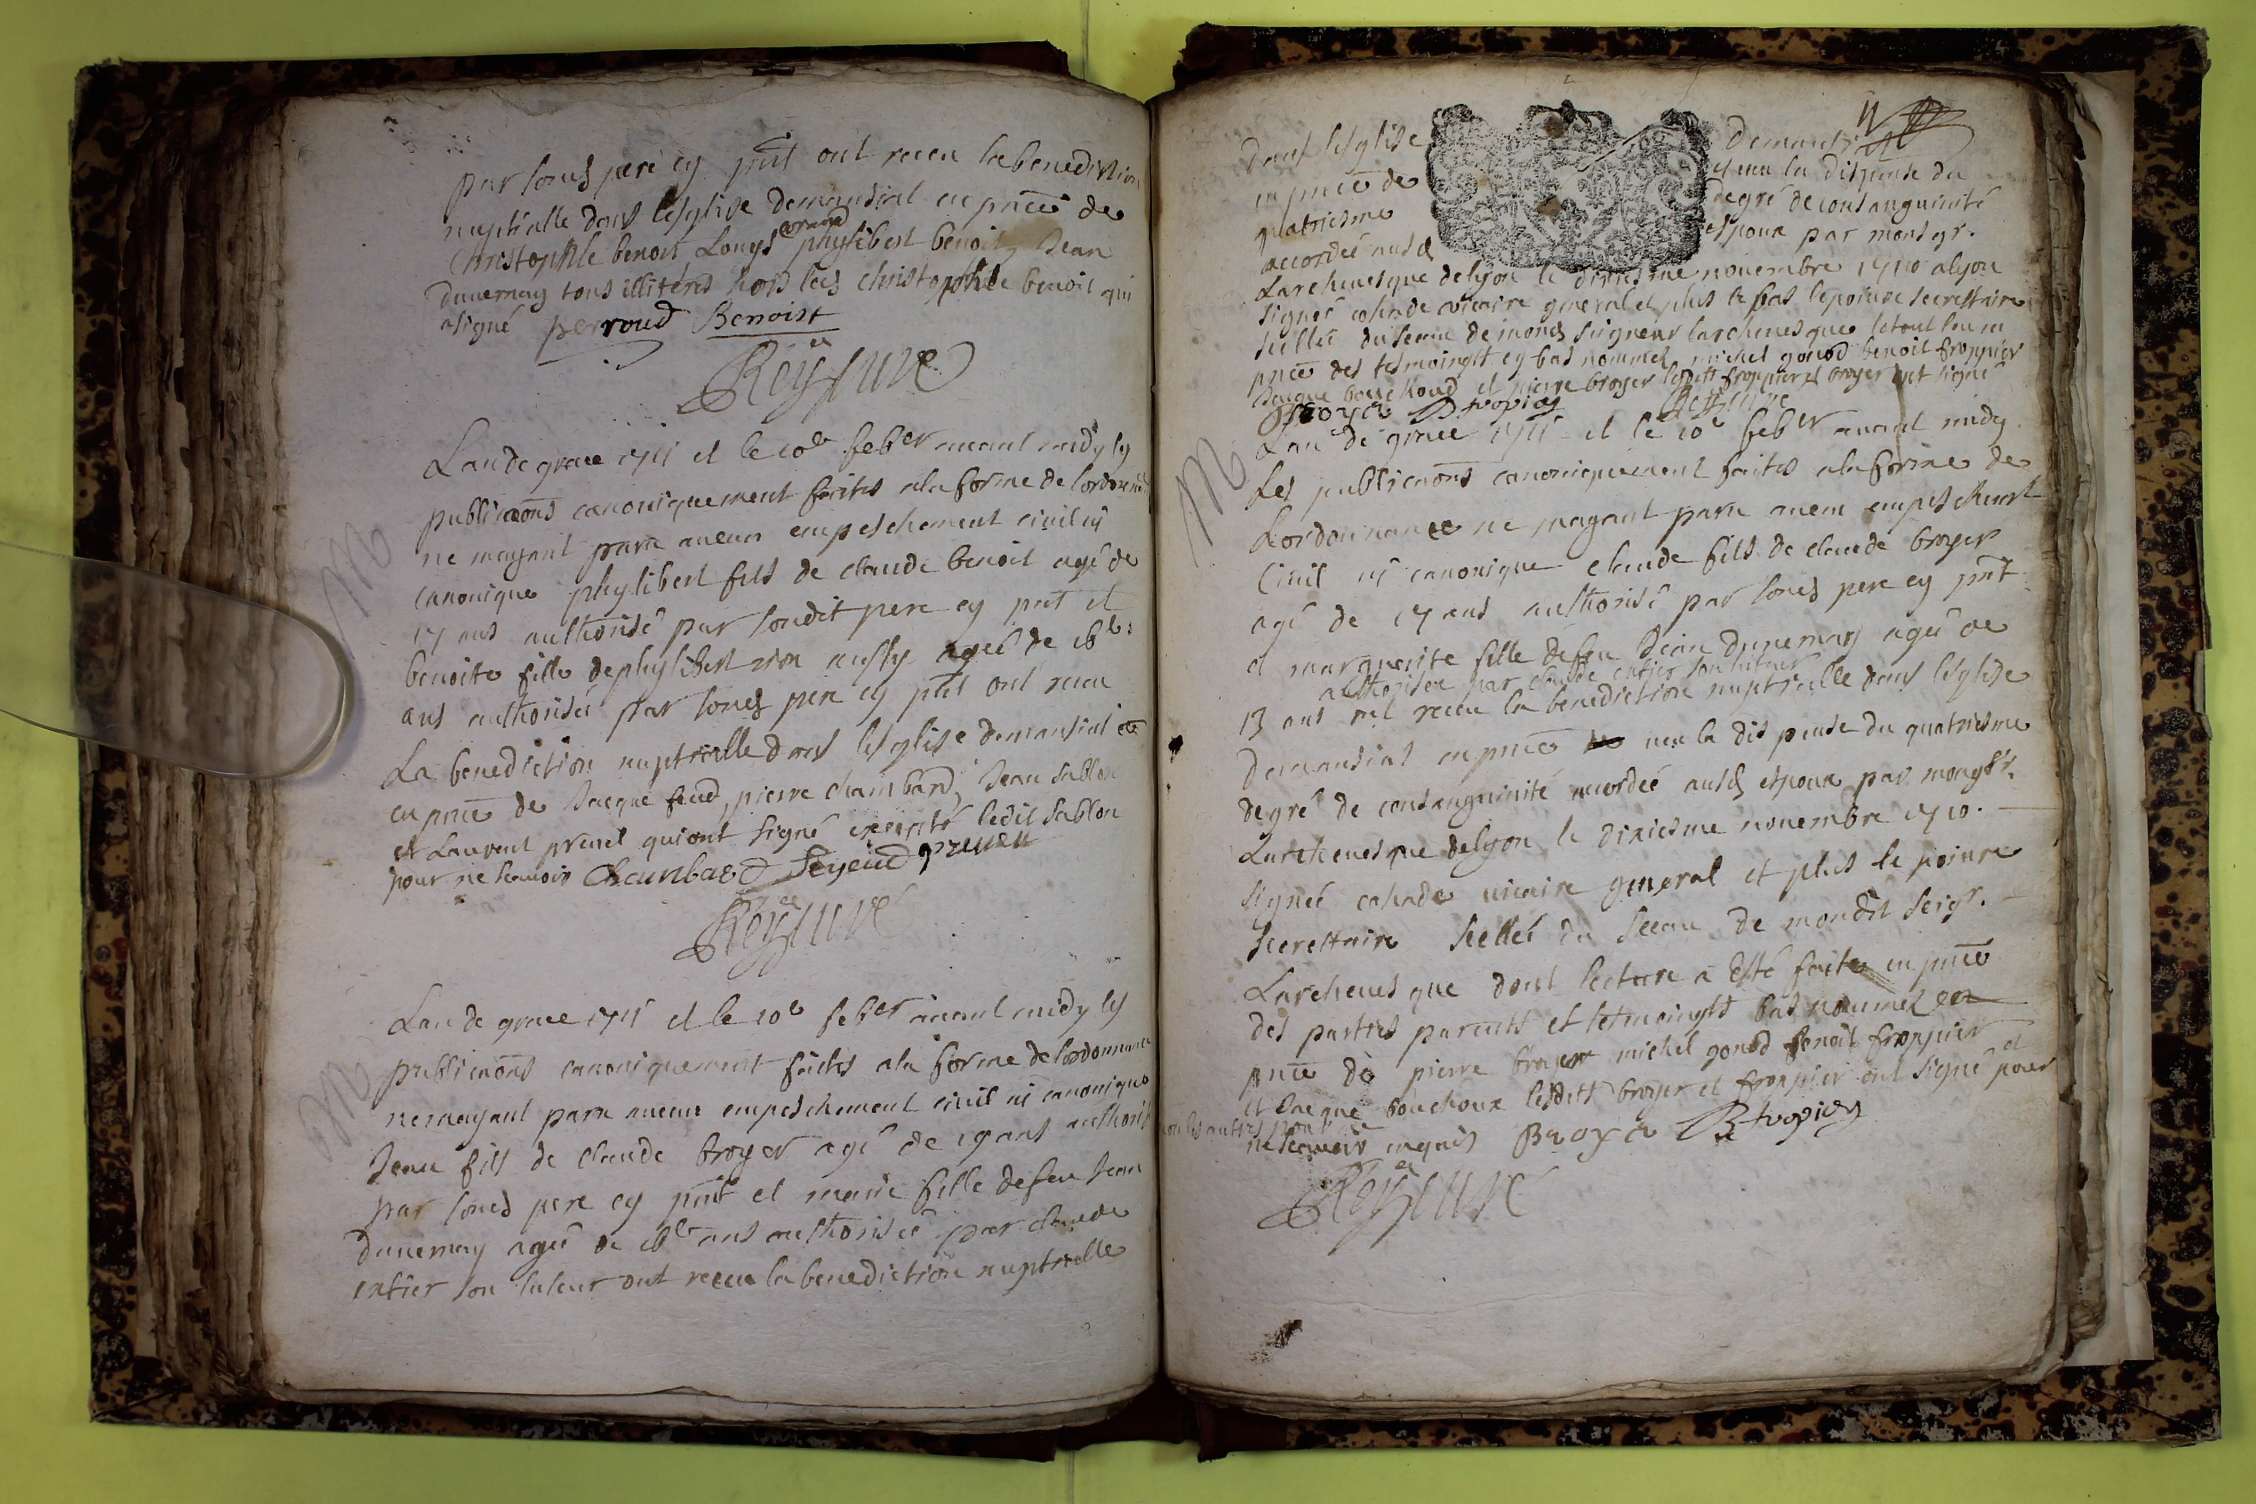 par sond pere cy pnt ont receu la benediction
nuptialle dans lesglise demansiat en pnce de
Christophle benoit Louys perroud phylibert benoit, Jean
dunernay tous illiterés hors led christophle benoit qui
a signé perroud Benoist
Reyssure
Lan de grace 1711 et le 10e feber avant midy les
publicaons canoniquement faites a la forme de lordonnance
ne mayant paru aucun empeschement civil ni
canonique phylibert fils de claude benoit agé de
17 ans authorisé par sondit pere cy pnt et
benoite fille de phylibert aussy agée de
ans authorisée par sond pere cy pnt ont receu
La benediction nuptialle dans lesglise demansiat
en pnce de Jacque feaud, pierre chambard, Jean Sablon
et Laurent prevel qui ont signé excepté ledit sablon
pour ne scavoir Chambard
Reyssure
M
Lan de grace 1711 et le 10e feber avant midy les
publicaons canoniquement faites a la forme de lordonnance
ne mayant paru aucun empeschement civil ni canonique
Jean fils de claude broyer agé de 19 ans authorisé
par sond pere cy pnt et marie fille de feu Jean
dunernay agée de ans authorisée par claude
entier son tuteur ont receu la benediction nuptialle
M
dans lesglise demansiat
en pnce de et veu la dispense du
quatriesme degré de consanguinité
accordée ausd espoux par monsgr.
Larchevesque de lyon le dixiesme novembre 1710 a lyon
signée cohade vicaire general et plus bas lepoivre secrettaire
scellée du sceau de mond seigneur larchevesque le tout leu en
pnce des tesmoingts cy bas nommez michel gonod benoit froppier
Jacque bouchoud et pierre broyer lesdits froppier et broyer ont signé
Broyer B fropier Reyssure
M
Lan de grace 1711 et le 10e feber avant midy
Les publicaons canoniquement faites a la forme de
Lordonnance ne mayant paru aucun empeschement
Civil ni canonique claude fils de claude broyer
agé de 17 ans authorisé par sond pere cy pnt
et marguerite fille de feu Jean dunernay agée de
authorisée par claude entier son tuteur
13 ans ont receu la benediction nuptialle dans lesglise
Demansiat en pnce veu la dispense du quatriesme
degré de consanguinité accordée ausd espoux par mongsr.
Larchevesque de lyon le dixiesme novembre 1710.
signée cohade vicaire general et plus le poivre
secrettaire scellée du sceau de mondit seigr.
Larchevesque dont lecture a Esté faite en pnce
des parties parents et tesmoingts bas nommez en
pnce de pierre broyer michel gonod benoit froppier
et Jacque bouchoux lesdits broyer et froppier ont signé et
non les autres pour ne scavoir enquis Broyer B fropier
Reyssure